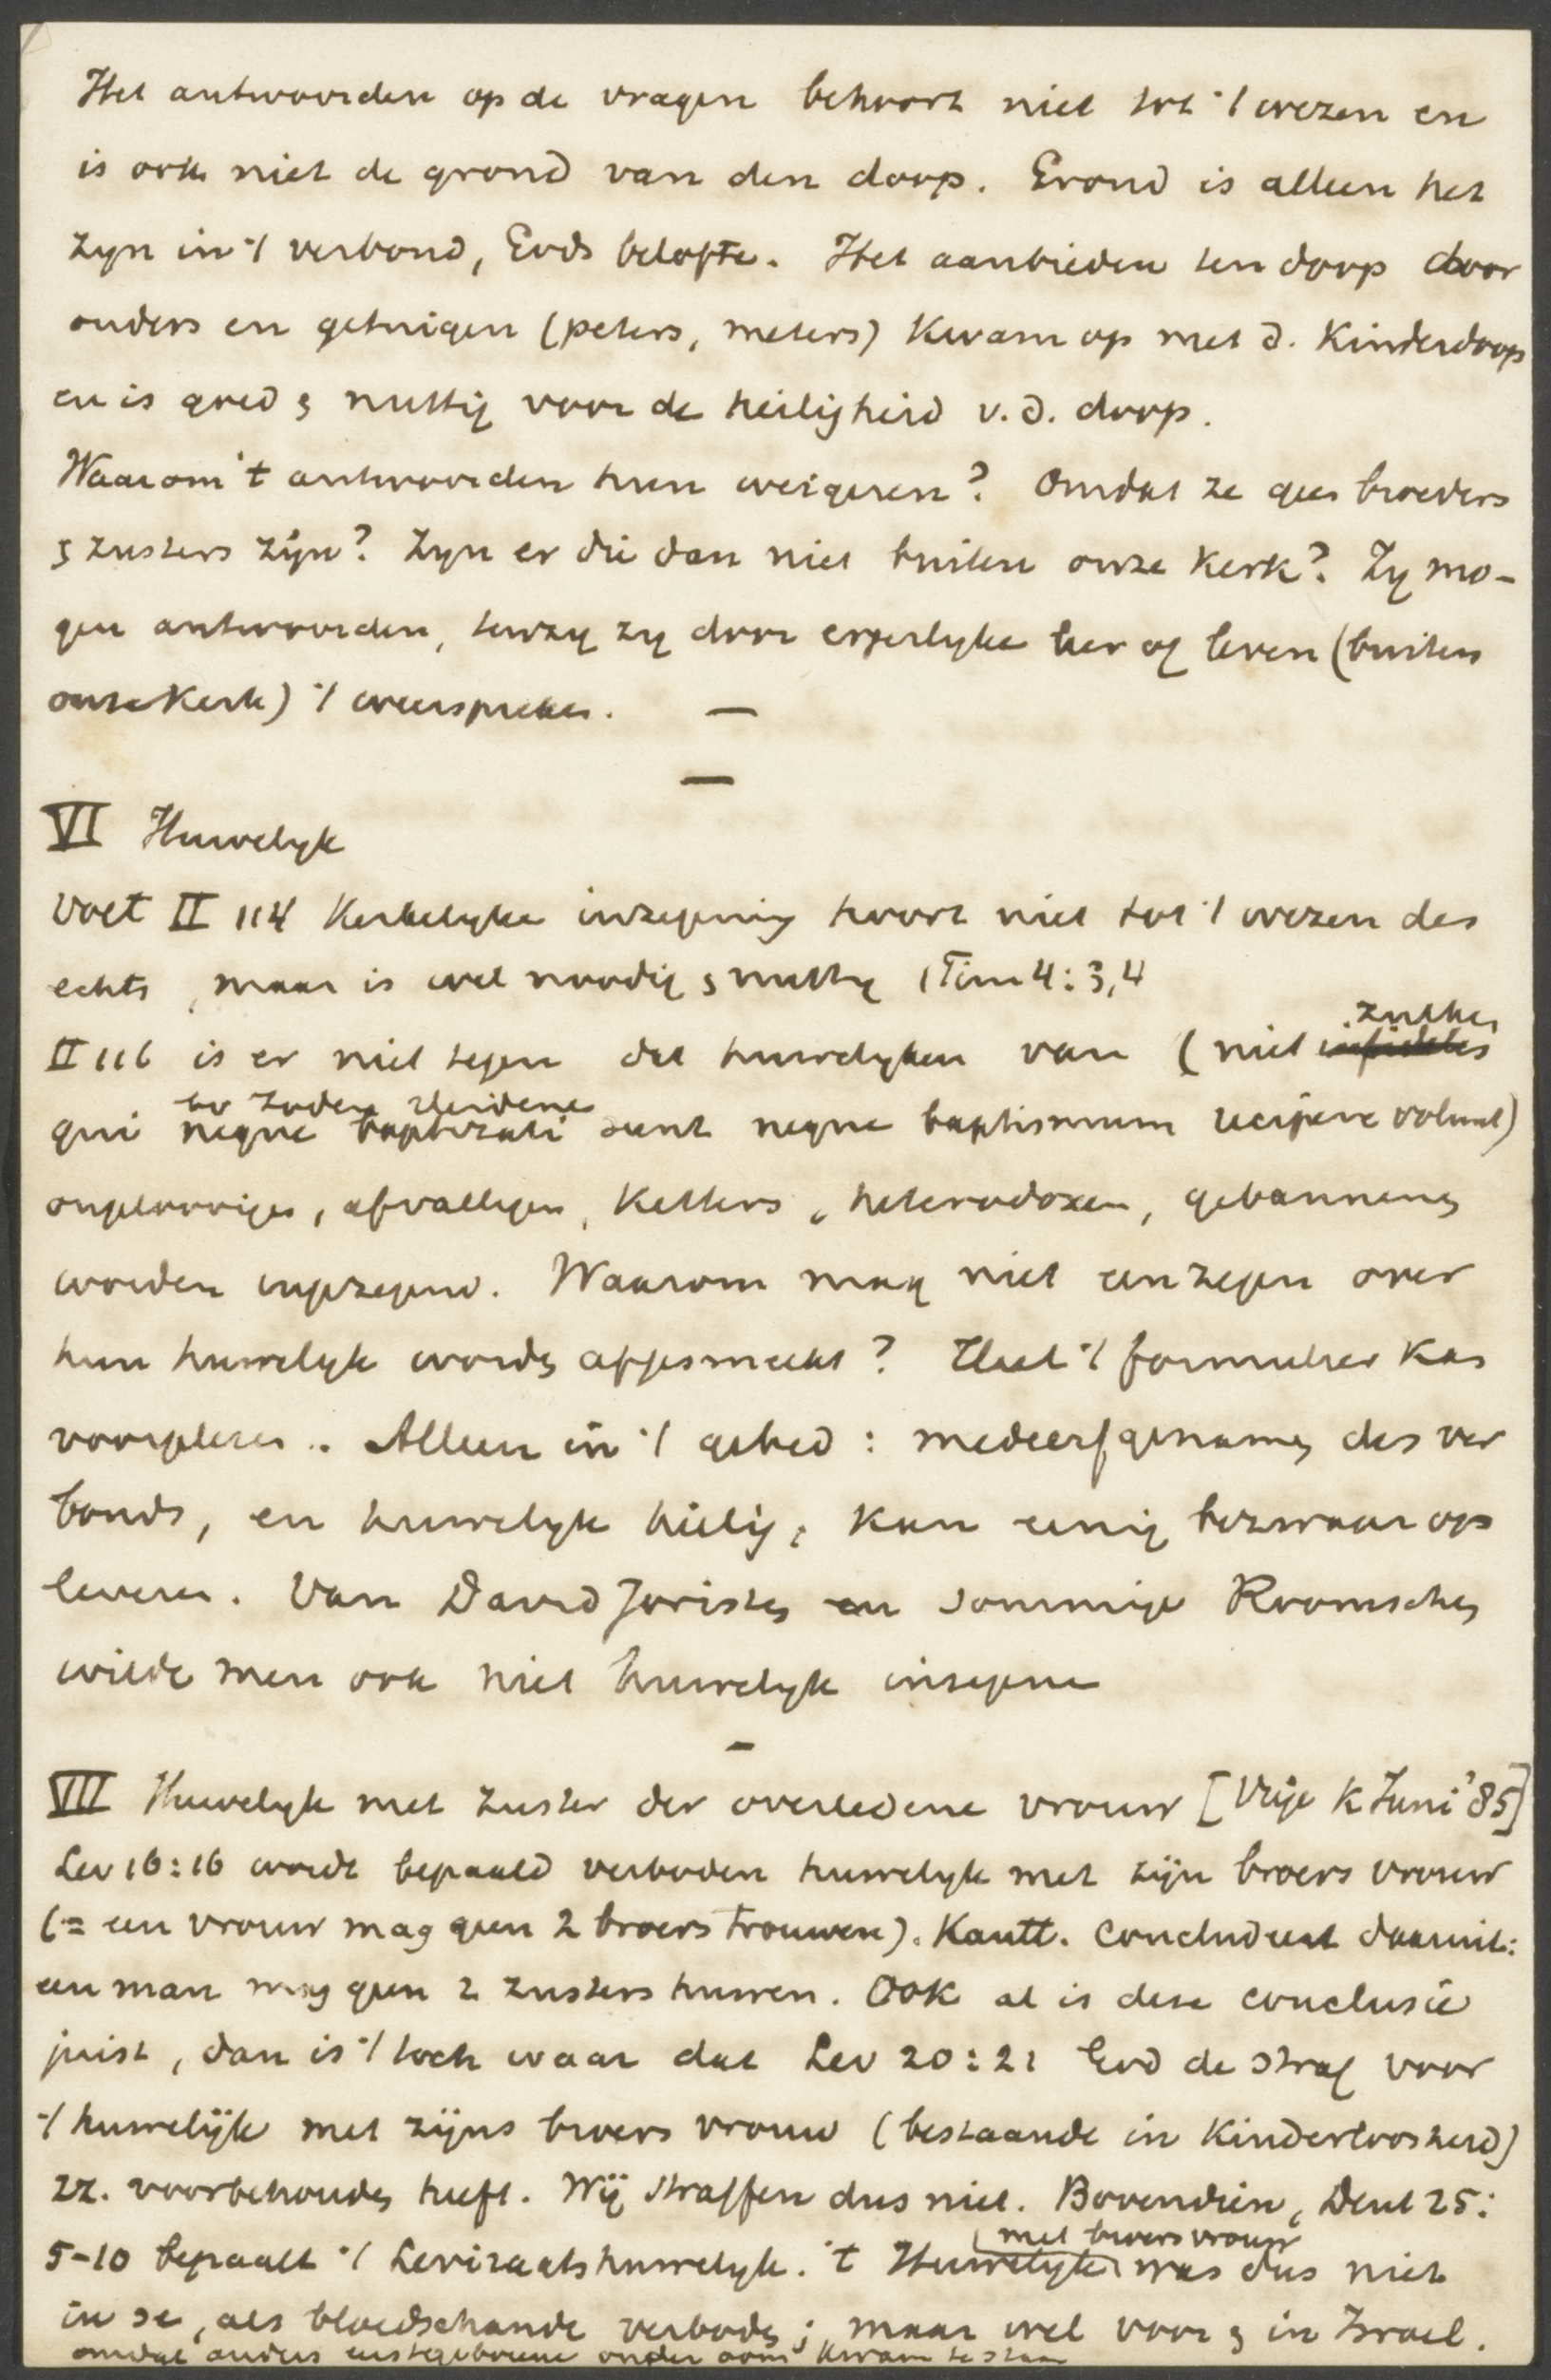 Het antwoorden op de vragen behoort niet tot 't wezen en
is ook niet de grond van den doop. Grond is alleen het
zyn in 't verbond, Gods belofte. Het aanbieden ten doop door
ouders en getuigen (peters, meters) kwam op met d. Kinderdoop
en is goed & nuttig voor de heiligheid v.d. doop.
Waarom 't antwoorden hun weigeren? Omdat ze geen broeders
& zusters zijn? Zyn er die dan niet buiten onze Kerk? Zy mo-
gen antwoorden, tenzy zy door ergerlyke leer of leven (buiten
onze Kerk) 't weerspreken. —
—
VI Huwelyk
Voet II 114 Kerkelyke inzegening hoort niet tot 't wezen des
echts, maar is wel noodig & nuttig 1 Tim 4:3,4
II 116 is er niet tegen dat huwelyken van (niet infideles zulken
qui neque baptizati sunt neque baptismum recipere volunt) bv Joden Heidenen
ongelovigen, afvalligen, Ketters, heterodoxen, gebannenen
worden ingezegend. Waarom mag niet een zegen over
hun huwelyk worden afgesmeekt? Heel 't formulier kan
voorgelezen.. Alleen in 't gebed: medeerfgenamen des ver
bonds, en huwelyk heilig, kan eenig bezwaar op
leveren. Van David Joristen en sommige Roomschen
wilde men ook niet huwelyk inzegenen
—
VII Huwelyk met zuster der overledene vrouw [Vrije K Juni '85]
Lev 16:16 wordt bepaald verboden huwelyk met zijn broers vrouw
(= een vrouw mag geen 2 broers trouwen). Kantt. concludeert daaruit:
een man mag geen 2 zusters huwen. Ook al is deze conclusie
juist, dan is 't toch waar dat Lev 20:21 God de straf voor
't huwelijk met zijns broers vrouw (bestaande in Kinderloosheid)
zz. voorbehouden heeft. Wij straffen dus niet. Bovendien, Deut 25:
5-10 bepaalt 't Leviraatshuwelyk. 't Huwelyk met broers vrouw was dus niet
in se, als bloedschande verboden; maar wel voor & in Israel.
omdat anders eerstgeborene onder oom kwam te staan